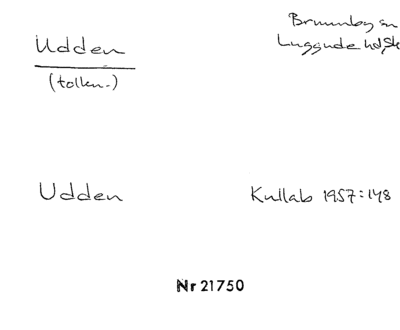 Udden
(tolken.)
Brunnby sn
Luggude hd, Sk
Udden
Kullab 1957:148
Nr 21750